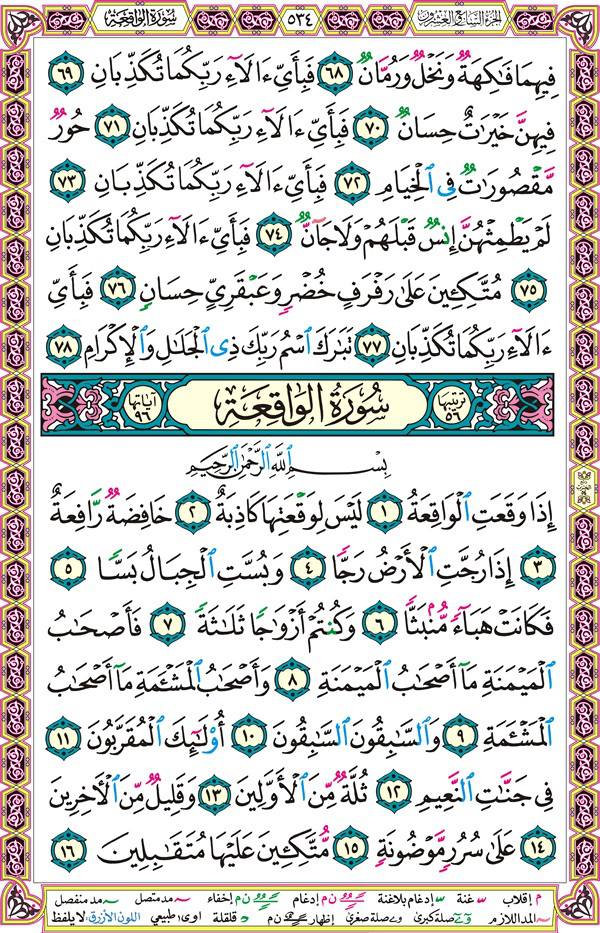 سُورَةُ الوَاقِعَةِ ٥٣٤ الجُزْءُ السَّابِعُ وَالعِشْرُونَ
فِيهِمَا فَـٰكِهَةٌ وَنَخْلٌ وَرُمَّانٌ ٦٨ فَبِأَىِّ ءَالَآءِ رَبِّكُمَا تُكَذِّبَانِ ٦٩
فِيهِنَّ خَيْرَٰتٌ حِسَانٌ ٧٠ فَبِأَىِّ ءَالَآءِ رَبِّكُمَا تُكَذِّبَانِ ٧١ حُورٌ
مَّقْصُورَٰتٌ فِى ٱلْخِيَامِ ٧٢ فَبِأَىِّ ءَالَآءِ رَبِّكُمَا تُكَذِّبَانِ ٧٣
لَمْ يَطْمِثْهُنَّ إِنسٌ قَبْلَهُمْ وَلَا جَآنٌّ ٧٤ فَبِأَىِّ ءَالَآءِ رَبِّكُمَا تُكَذِّبَانِ
٧٥ مُتَّكِـِٔينَ عَلَىٰ رَفْرَفٍ خُضْرٍ وَعَبْقَرِىٍّ حِسَانٍ ٧٦ فَبِأَىِّ
ءَالَآءِ رَبِّكُمَا تُكَذِّبَانِ ٧٧ تَبَـٰرَكَ ٱسْمُ رَبِّكَ ذِى ٱلْجَلَـٰلِ وَٱلْإِكْرَامِ ٧٨
ترتيبها ٥٦ سُورَةُ الوَاقِعَةِ آياتها ٩٦
بِسْمِ ٱللَّهِ ٱلرَّحْمَـٰنِ ٱلرَّحِيمِ
إِذَا وَقَعَتِ ٱلْوَاقِعَةُ ١ لَيْسَ لِوَقْعَتِهَا كَاذِبَةٌ ٢ خَافِضَةٌ رَّافِعَةٌ
٣ إِذَا رُجَّتِ ٱلْأَرْضُ رَجًّا ٤ وَبُسَّتِ ٱلْجِبَالُ بَسًّا ٥
فَكَانَتْ هَبَآءً مُّنۢبَثًّا ٦ وَكُنتُمْ أَزْوَٰجًا ثَلَـٰثَةً ٧ فَأَصْحَـٰبُ
ٱلْمَيْمَنَةِ مَآ أَصْحَـٰبُ ٱلْمَيْمَنَةِ ٨ وَأَصْحَـٰبُ ٱلْمَشْـَٔمَةِ مَآ أَصْحَـٰبُ
ٱلْمَشْـَٔمَةِ ٩ وَٱلسَّـٰبِقُونَ ٱلسَّـٰبِقُونَ ١٠ أُو۟لَـٰٓئِكَ ٱلْمُقَرَّبُونَ ١١
فِى جَنَّـٰتِ ٱلنَّعِيمِ ١٢ ثُلَّةٌ مِّنَ ٱلْأَوَّلِينَ ١٣ وَقَلِيلٌ مِّنَ ٱلْـَٔاخِرِينَ
١٤ عَلَىٰ سُرُرٍ مَّوْضُونَةٍ ١٥ مُّتَّكِـِٔينَ عَلَيْهَا مُتَقَـٰبِلِينَ ١٦
م إقلاب غنة إدغام بلاغنة إدغام ن م إخفاء مد متصل مد منفصل
المد اللازم صلة كبرى صلة صغرى إظهار ن م قلقلة اوى: طبيعي اللون الأزرق: لا يلفظ